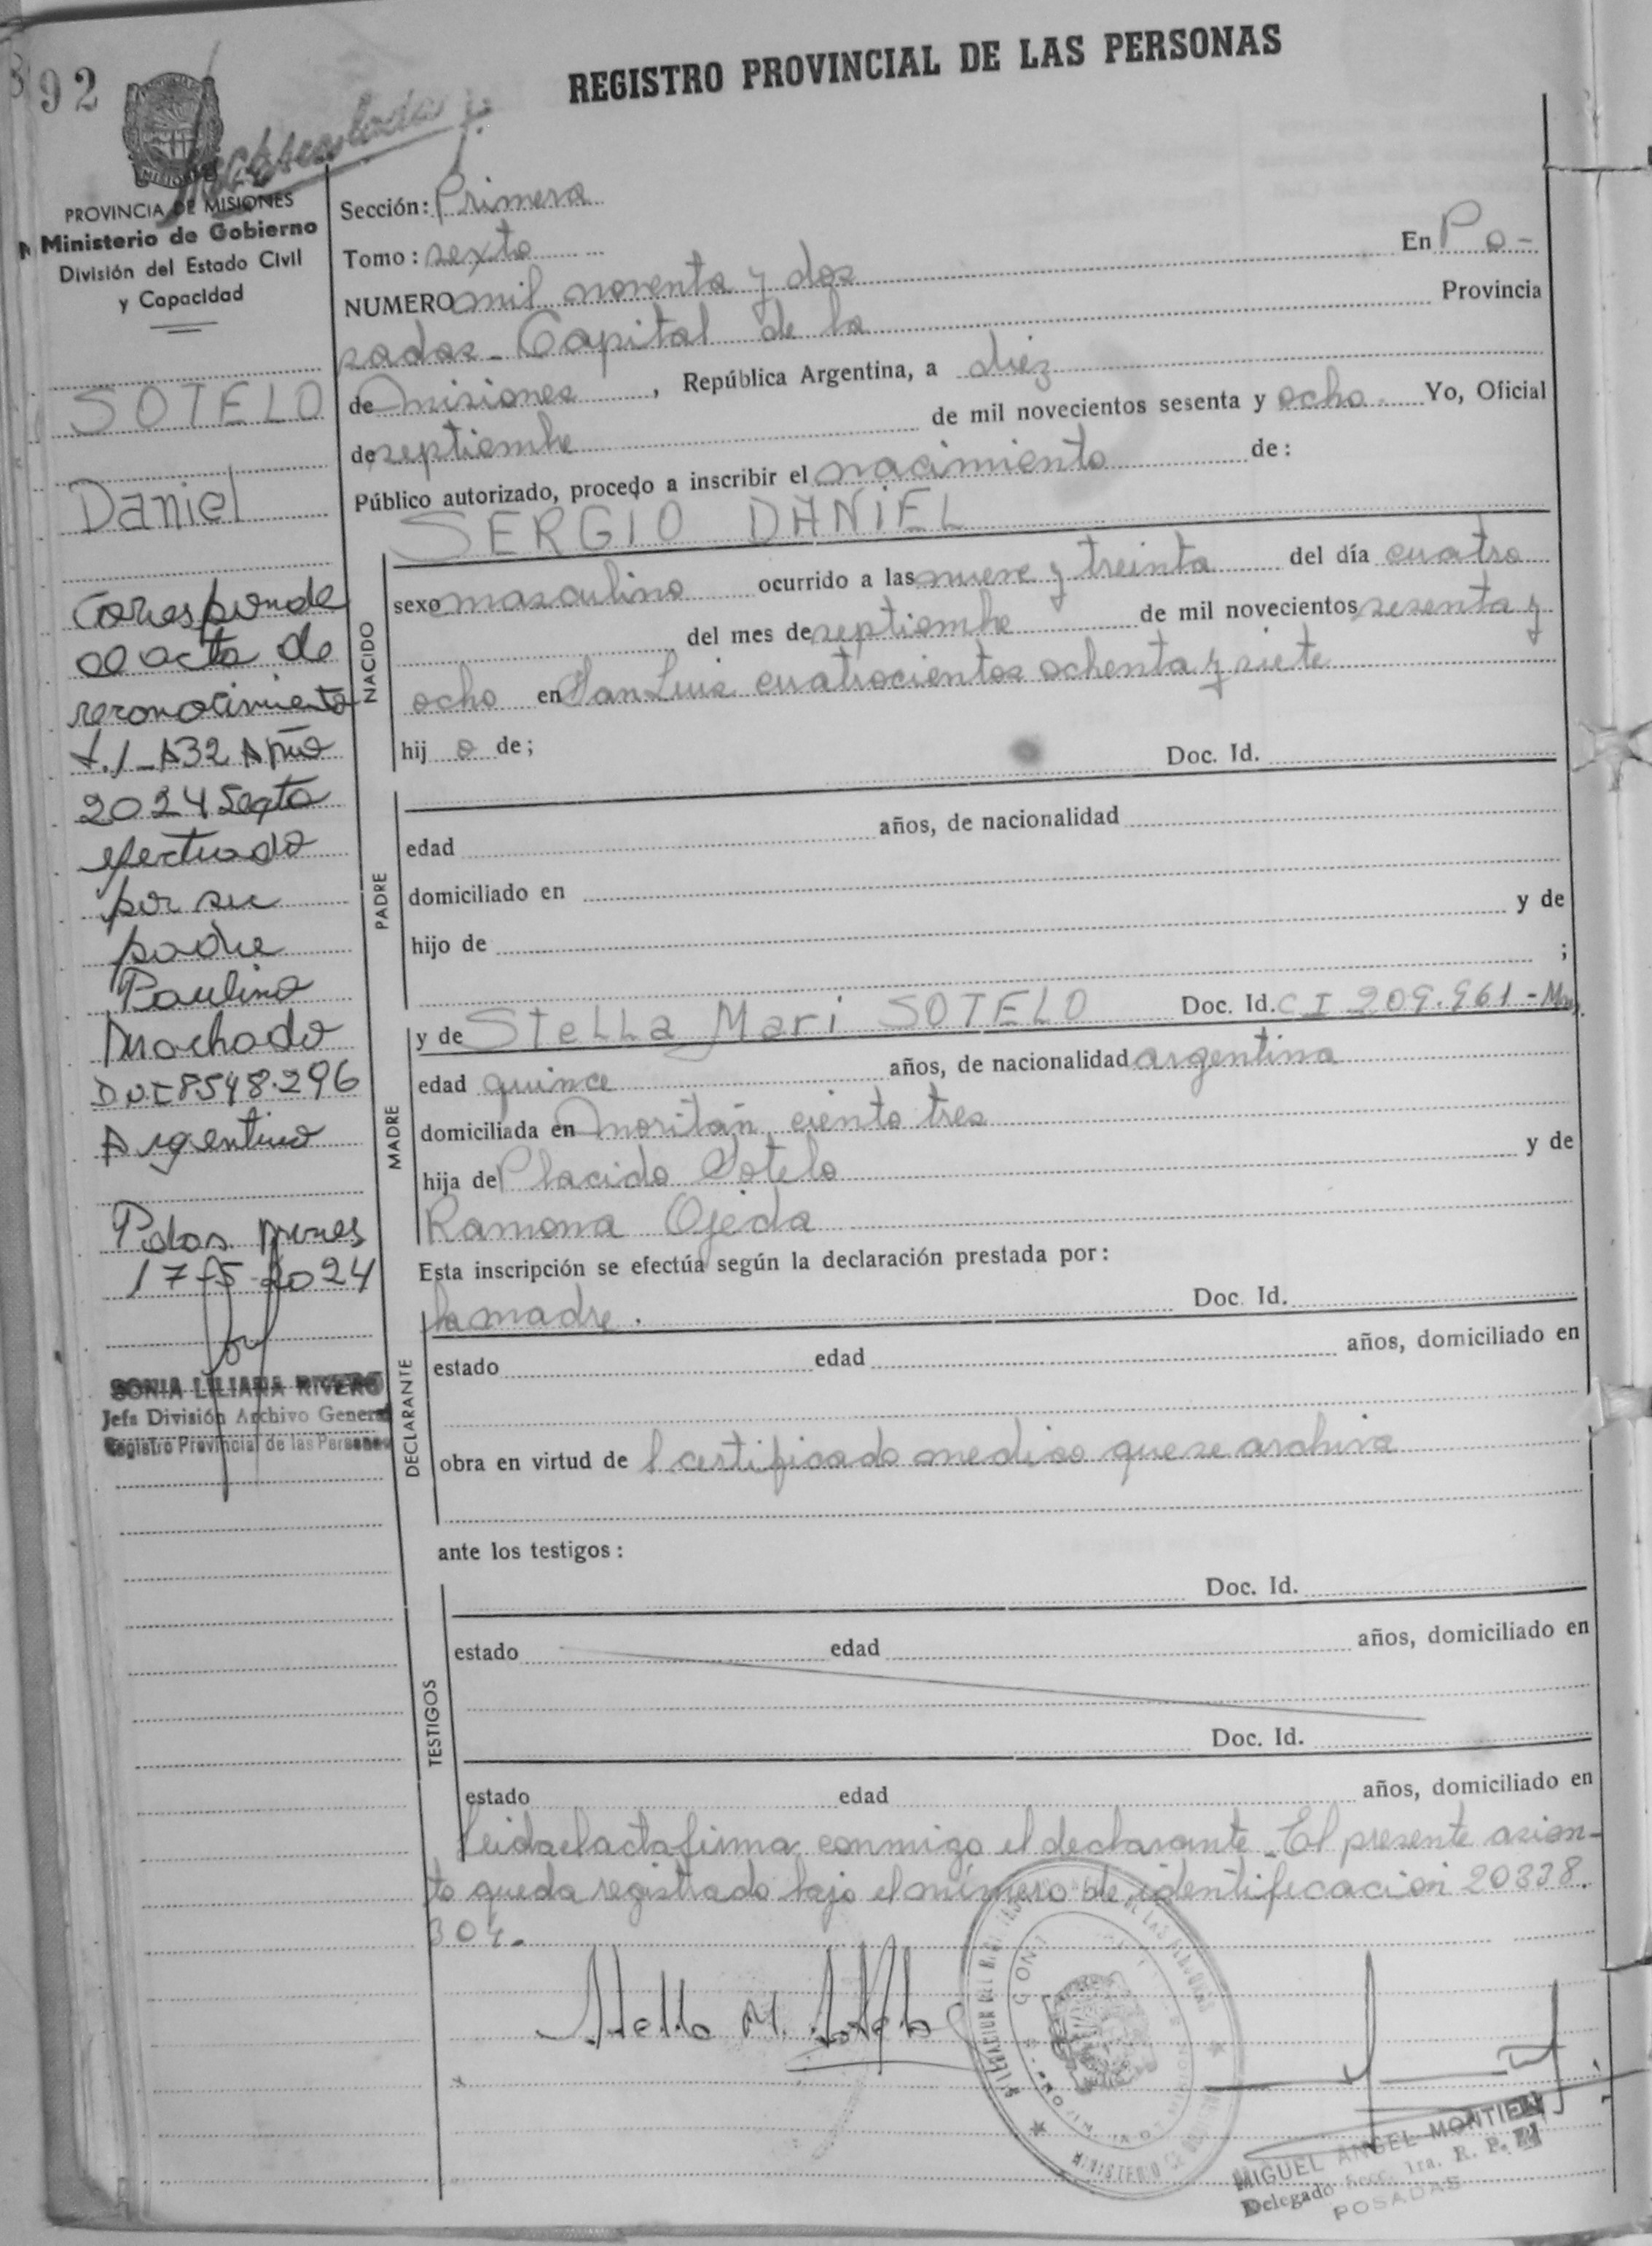 392
REGISTRO PROVINCIAL DE LAS PERSONAS
MISIONES
PROVINCIA DE MISIONES
Ministerio de Gobierno
División del Estado Civil
y Capacidad
SOTELO
Daniel
Corresponde
al acta de
reconocimiento
t.1_A32 Año
2024 Secta
efectuado
por su
padre
Paulino
Machado
DNI 8548.296
Argentino
Pdas Mnes
17-5-2024
SONIA LILIANA RIVERO
Jefa División Archivo General
Registro Provincial de las Personas
Sección: Primera
Tomo: sexto
NUMERO mil noventa y dos En Po-
sadas - Capital de la Provincia
de Misiones, República Argentina, a diez
de septiembre de mil novecientos sesenta y ocho. Yo, Oficial
Público autorizado, procedo a inscribir el nacimiento de:
SERGIO DANIEL
NACIDO
sexo masculino ocurrido a las nueve y treinta del día cuatro
del mes de septiembre de mil novecientos sesenta y
ocho en San Luis cuatrocientos ochenta y siete
hij o de;
Doc. Id.
PADRE
edad años, de nacionalidad
domiciliado en
hijo de y de
;
MADRE
y de Stella Mari SOTELO Doc. Id. C I 209.961 - Mnes.
edad quince años, de nacionalidad argentina
domiciliada en Moritán ciento tres
hija de Placido Sotelo y de
Ramona Ojeda
Esta inscripción se efectúa según la declaración prestada por:
la madre. Doc. Id.
DECLARANTE
estado edad años, domiciliado en
obra en virtud de l certificado medico que se archiva
ante los testigos:
Doc. Id.
TESTIGOS
estado edad años, domiciliado en
Doc. Id.
estado edad años, domiciliado en
Leida el acta firma conmigo el declarante - El presente asien-
to queda registrado bajo el número de identificación 20338.
304.
Stella M. Sotelo
MIGUEL ANGEL MONTIEL
Delegado Secc. 1ra. R. P.
POSADAS